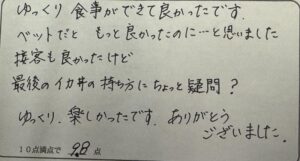 ゆっくり食事ができて良かったです.
ペットだと もっと良かったのに…と思いました
接客も良かったけど
最後のイカ丼の持ち方にちょっと疑問?
ゆっくり.楽しかったです.ありがとう
ございました.
10点満点で 9.8 点